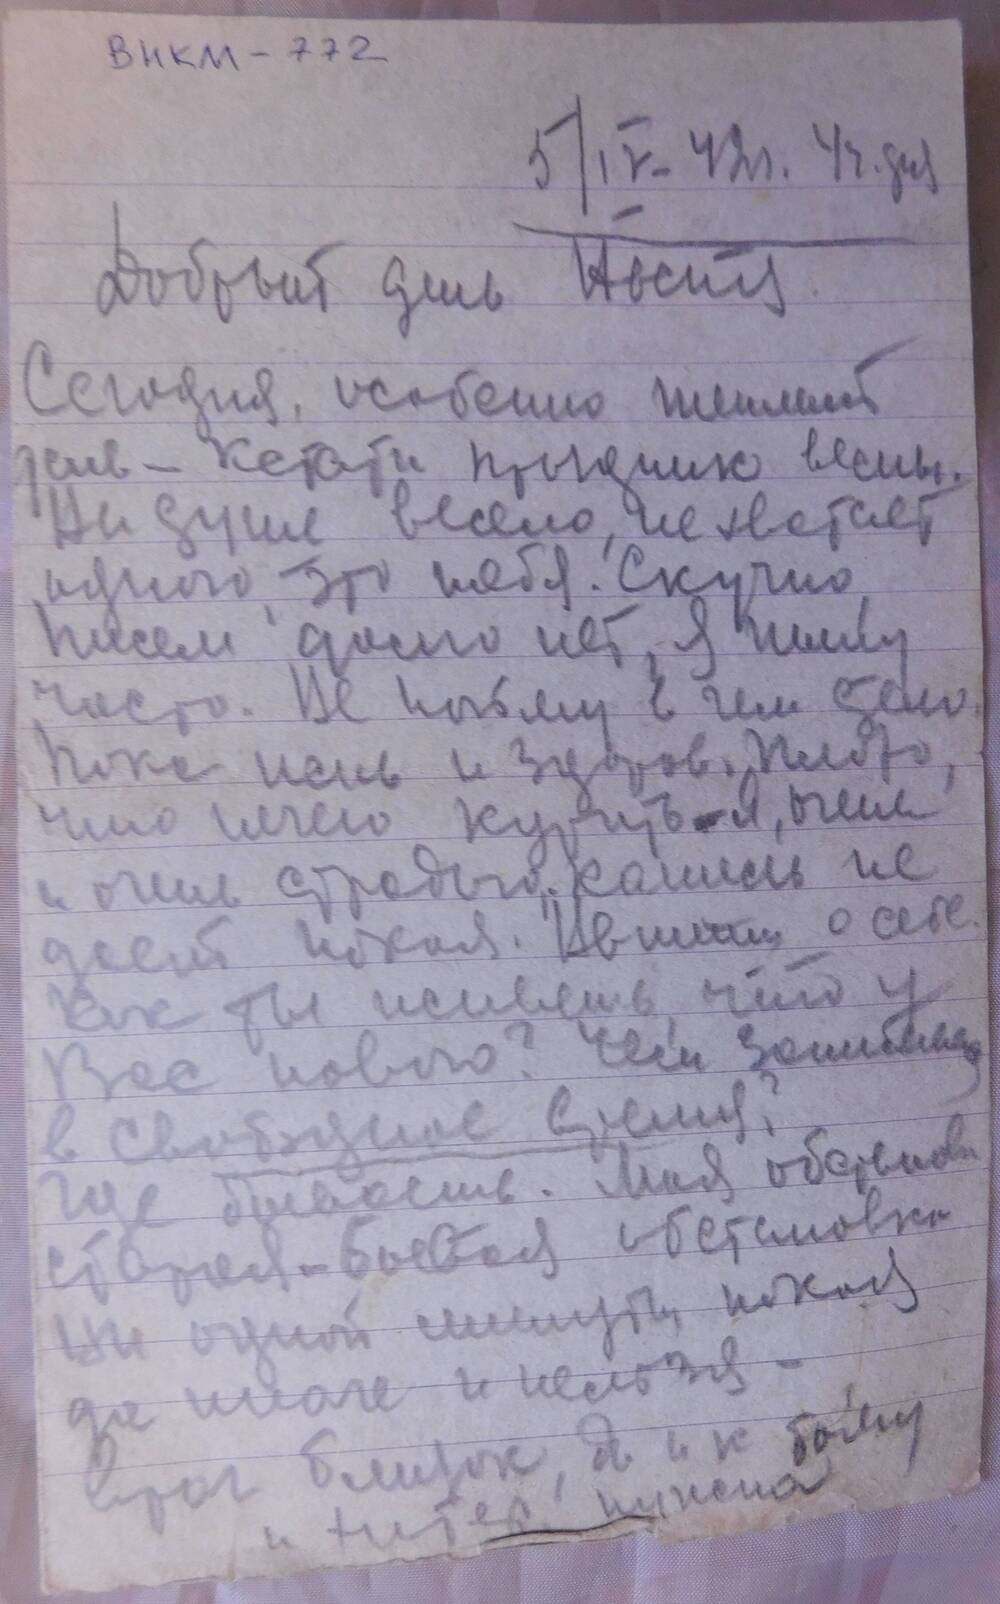 ВИКМ-772
5/IV-42г. 4ч. дня
Добрый день Настя.
Сегодня, особенно теплый
день - кстати праздник весны.
На душе весело, не хватает
одного, это тебя. Скучно,
писем давно нет, я пишу
часто. Не пойму в чем дело.
Пока жив и здоров. Плохо,
что нечего курить - я, очень
и очень страдаю. кашель не
дает покоя. Напиши о себе.
Как ты живешь, что у
Вас нового? Чем занимаешься
в свободное время?
Где бываешь. Моя обстановка
старая - боевая обстановка
ни одной минуты покоя
да иначе и нельзя -
враг близок, да и к бою
и нужна